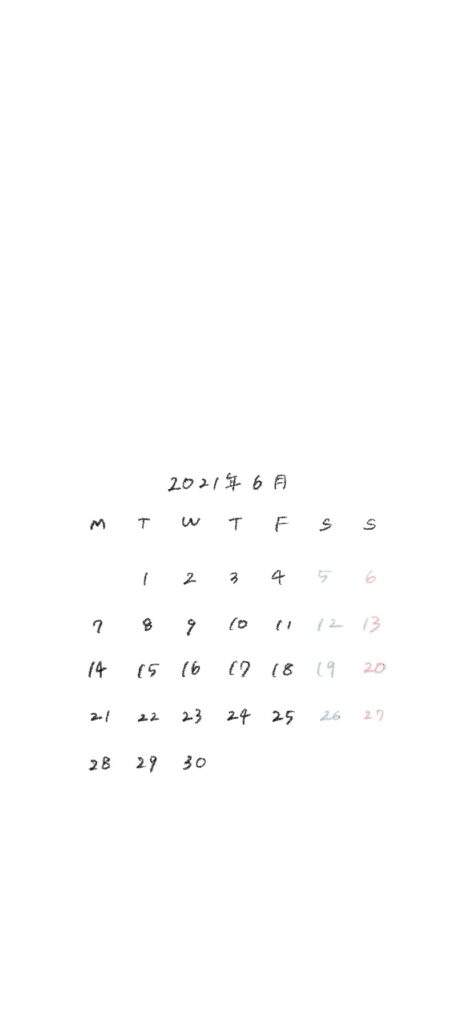 2021年6月
M T W T F S S
1 2 3 4 5 6
7 8 9 10 11 12 13
14 15 16 17 18 19 20
21 22 23 24 25 26 27
28 29 30